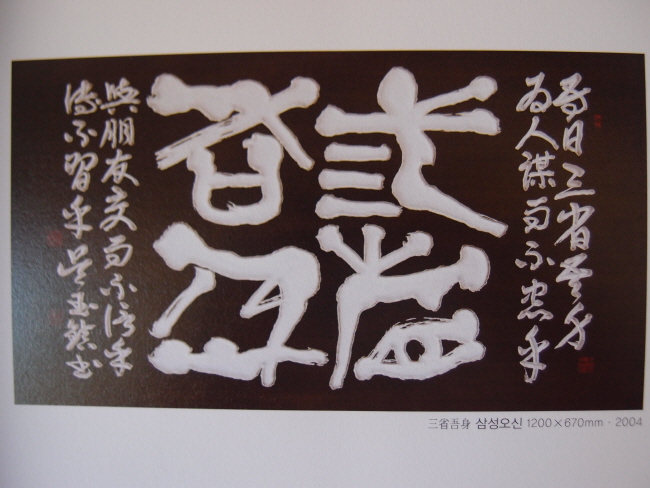 吾日三省吾身
為人謀而不忠乎
三省
吾身
與朋友交而不信乎
傳不習乎 吳玉 書
三省吾身 삼성오신 1200×670mm · 2004